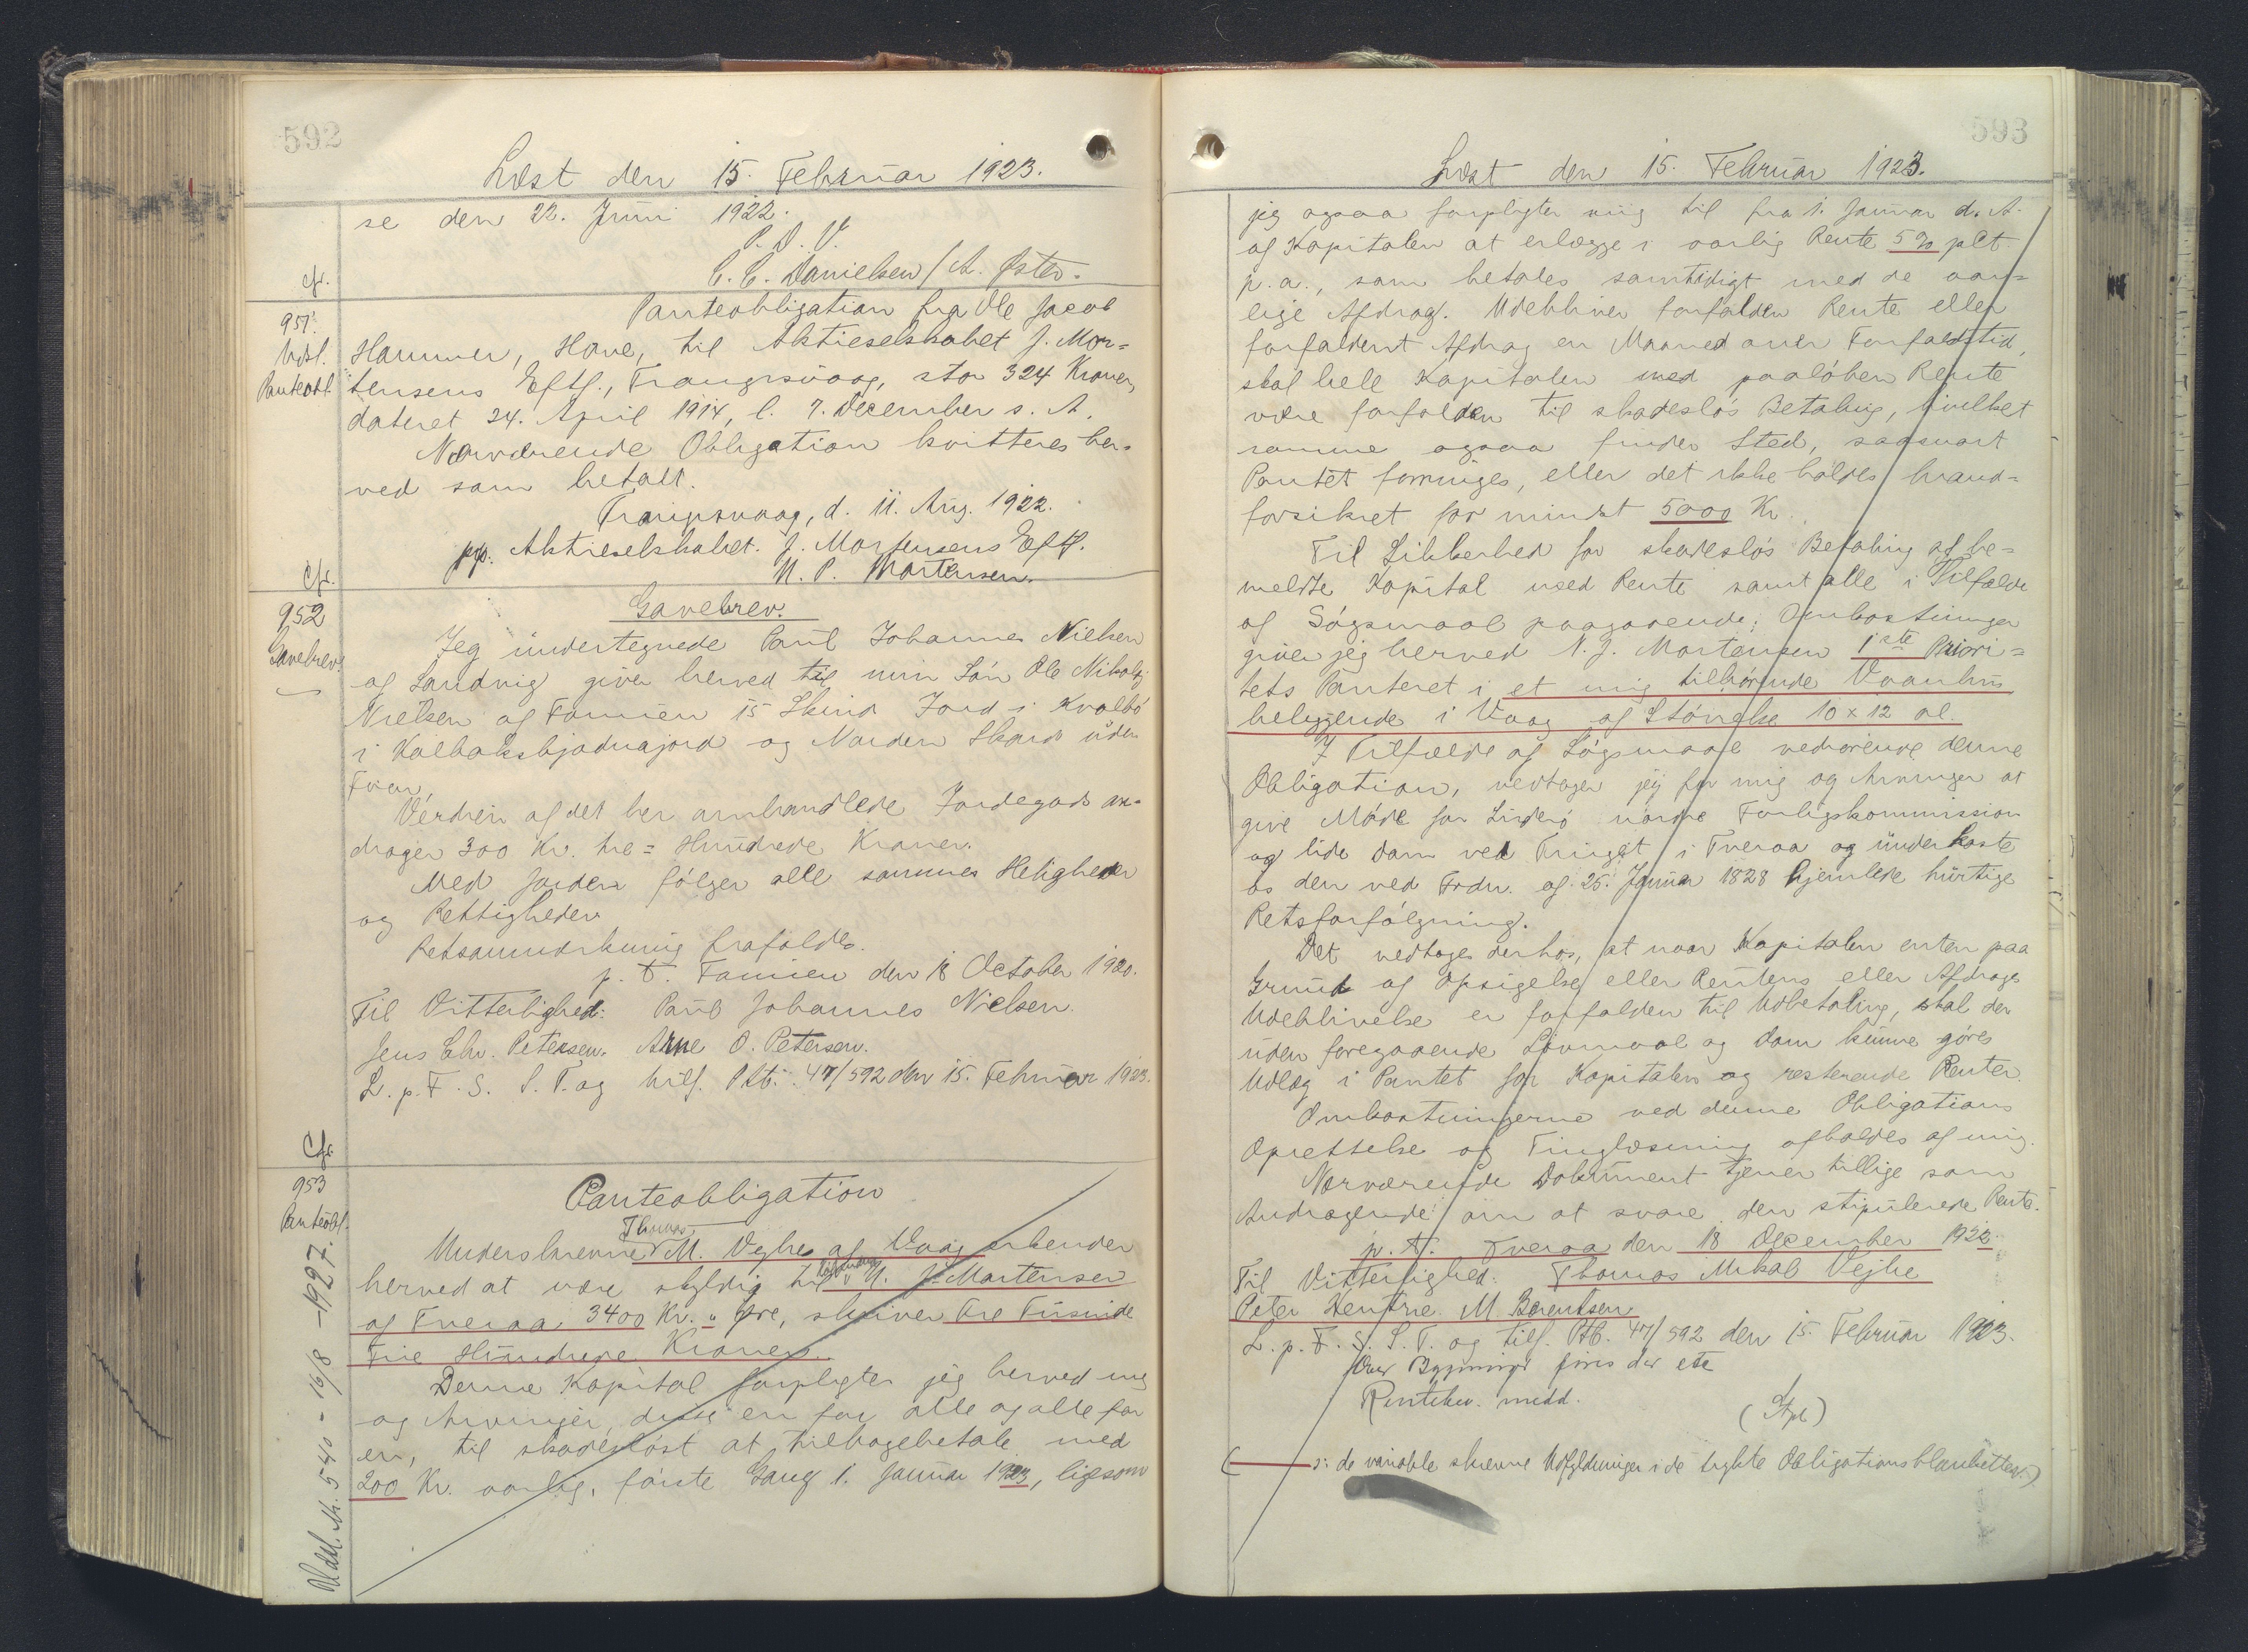 592
Læst den 15. Februar 1923.
se den 22. Juni 1922.
P. D. V.
C. C. Danielsen / A. Øster.
Cfr.
951.
Udsl.
Panteobl.
Panteobligation fra Ole Jacob
Hammer, Hove, til Aktieselskabet J. Mor=
tensens Eftf., Trangisvaag, stor 324 Kroner,
dateret 24. April 1914, l. 7. December s. A.
Nærværende Obligation kvitteres her=
ved som betalt.
Trangisvaag, d. 11. Aug. 1922.
pp. Aktieselskabet. J. Mortensens Eftf.
N. P. Mortensen.
Cfr.
952
Gavebrev.
Gavebrev.
Jeg undertegnede Paul Johannes Nielsen
af Sandvig giver herved til min Søn Ole Nikolaj
Nielsen af Famien 15 Skind Jord i Kvalbø
i Kalbaksbjadnajord og Norden Skard uden
Fvor.
Værdien af det her omhandlede Jordegods an=
drager 300 Kr. tre = Hundrede Kroner.
Med Jorden følger alle sammes Herligheder
og Rettigheder.
Retsanmærkning frafaldes.
p. t. Famien den 18 October 1920.
Til Vitterlighed: Paul Johannes Nielsen.
Jens Chr. Petersen. Arne O. Petersen.
L. p. F. S. S. T. og tilf. Ptb. 47/592 den 15. Februar 1923.
Cfr.
953
Panteobl.
Udsl. Nr. 540 - 16/8 - 1927.
Panteobligation
Thomas
Underskrevne M. Vejhe af Vaag erkender
Købmand
herved at være skyldig til N. J. Mortensen
af Tveraa 3400 Kr. " Øre, skriver Tre Tusinde
Fire Hundrede Kroner.
Denne Kapital forpligter jeg herved mig
og Arvinger, disse en for alle og alle for
en, til skadesløst at tilbagebetale med
200 Kr. aarlig, første Gang 1. Januar 1923, ligesom
593
Læst den 15. Februar 1923.
jeg ogsaa forpligter mig til fra 1. Januar d. A.
af Kapitalen at erlægge i aarlig Rente 5 % pCt.
p. a., som betales samtidigt med de aar=
lige Afdrag. Udebliver forfalden Rente eller
forfaldent Afdrag en Maaned over Forfaldstid,
skal hele Kapitalen med paaløben Rente
være forfalden til skadesløs Betaling, hvilket
samme ogsaa finder Sted, saasnart
Pantet forringes, eller det ikke holdes brand=
forsikret for mindst 5000 Kr.
Til Sikkerhed for skadesløs Betaling af be=
meldte Kapital med Rente samt alle i Tilfælde
af Søgsmaal paagaaende Omkostninger
giver jeg herved N. J. Mortensen 1ste Priori=
tets Panteret i et mig tilhørende Vaanhus
beliggende i Vaag af Størrelse 10 x 12 al.
I Tilfælde af Søgsmaal vedrørende denne
Obligation, vedtager jeg for mig og Arvinger at
give Møde for Suderø nordre Forligskommission
og lide Dom ved Tinget i Tveraa og underkaste
os den ved Frdn. af 25. Januar 1828 hjemlede hurtige
Retsforfølgning.
Det vedtages derhos, at naar Kapitalen enten paa
Grund af Opsigelse eller Rentens eller Afdrags
Udeblivelse er forfalden til Udbetaling, skal der
uden foregaaende Lovmaal og Dom kunne gøres
Udlæg i Pantet for Kapitalen og resterende Renter.
Omkostningerne ved denne Obligations
Oprettelse og Tinglæsning afholdes af mig.
Nærværende Dokument tjener tillige som
Andragende om at svare den stipulerede Rente.
p. t. Tveraa den 18 December 1922.
Til Vitterlighed: Thomas Mikal Vejhe
Peter Hentze. M. Berentsen
L. p. F. S. S. T. og tilf. Ptb. 47/592 den 15. Februar 1923.
Over Bygninger føres der ete
Rentebev. medd.
(Stpl)
( s: de variable skrevne Udfyldninger i de trykte Obligationsblanketter.)